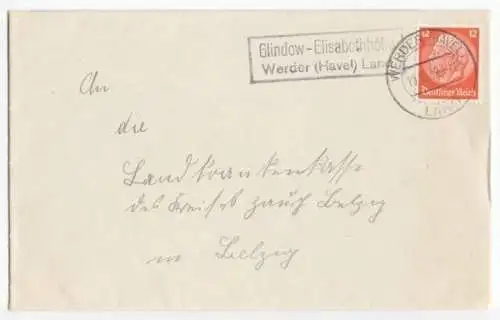 Glindow-Elisabethhöh
Werder (Havel) Land
WERDER (HAVEL)
LAND
12 12
Deutsches Reich
An
die
Landkrankenkasse
des Kreises Zauch Belzig
in Belzig